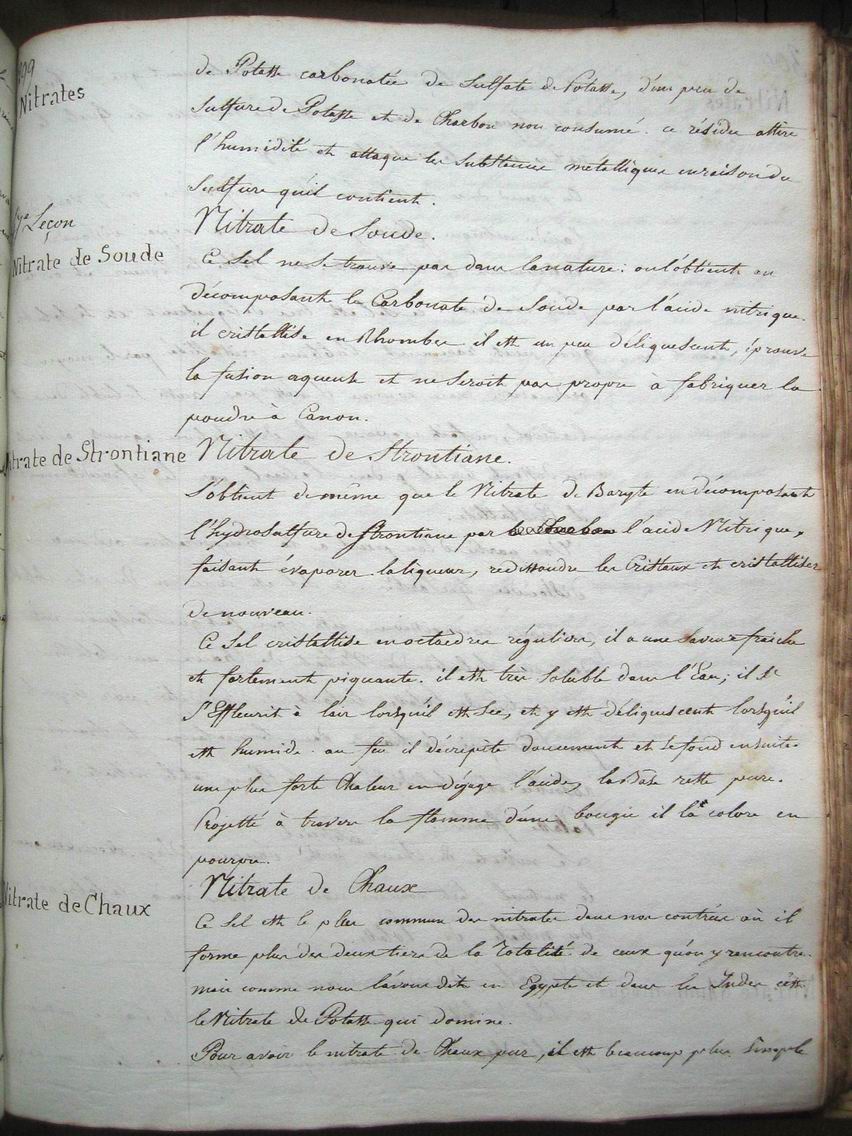 399
Nitrates
de Potasse carbonatée de Sulfate de Potasse, d'un peu de
Sulfure de Potasse et de Charbon non consumé. ce résidu attire
l'humidité et attaque les Substances metalliques en raison du
Sulfure qu'il contient.
Leçon
Nitrate de Soude.
Nitrate de Soude
Ce Sel ne se trouve pas dans la nature: on l'obtient en
décomposant le Carbonate de Soude par l'acide nitrique.
il cristallise en Rhombes il est un peu déliquescent, éprouve
la fusion aqueuse et ne seroit pas propre a fabriquer la
poudre à Canon.
Nitrate de Strontiane
Nitrate de Strontiane.
S'obtient de même que le Nitrate de Baryte en décomposant
l'hydrosulfure de Strontiane par l'acide Nitrique,
faisant evaporer la liqueur, redissoudre les Cristaux et cristalliser
de nouveau.
Ce Sel cristallise en octaedres réguliers, il a une Saveur fraiche
et fortement piquante. il est très Soluble dans l'Eau; il
S'Effleurit à l'air lorsqu'il est Sec, et y est déliquescent lorsqu'il
est humide. au feu il décrépite doucement et se fond ensuite.
une plus forte Chaleur en dégage l'acide, la Base reste pure.
Projetté à travers la flamme d'une bougie il la colore en
pourpre.
Nitrate de Chaux
Nitrate de Chaux
Ce Sel est le plus commun des nitrates dans nos contrées où il
forme plus des deux tiers de la totalité de ceux qu'on y rencontre.
mais comme nous l'avons dit en Egypte et dans les Indes c'est
le Nitrate de Potasse qui domine.
Pour avoir le nitrate de Chaux pur, il est beaucoup plus Simple